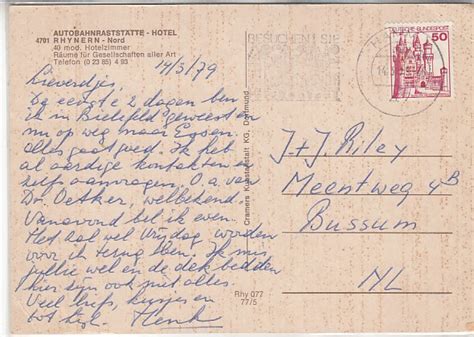 AUTOBAHNRASTSTÄTTE - HOTEL
4701 RHYNERN - Nord
40 mod. Hotelzimmer
Räume für Gesellschaften aller Art
Telefon (0 23 85) 4 93
14/5/79
Lieverdjes,
De eerste 2 dagen ben
ik in Bielefeld geweest en
nu op weg naar Essen.
Alles gaat goed. Ik heb
al aardige kontakten en
zelfs aanvragen. O.a. van
Dr. Oetker, welbekend.
Vanavond bel ik even.
Het zal wel Vrijdag worden
voor ik terug ben. Ik mis
jullie wel en de dekbedden
hier zijn ook niet alles.
Veel liefs, kusjes en
tot Henk
Cramers Kunstanstalt KG, Dortmund
Rhy 077
77/5
BESUCHEN SIE
DEUTSCHE BUNDESPOST
50
J+J. Riley
Meentweg 4B
Bussum
NL